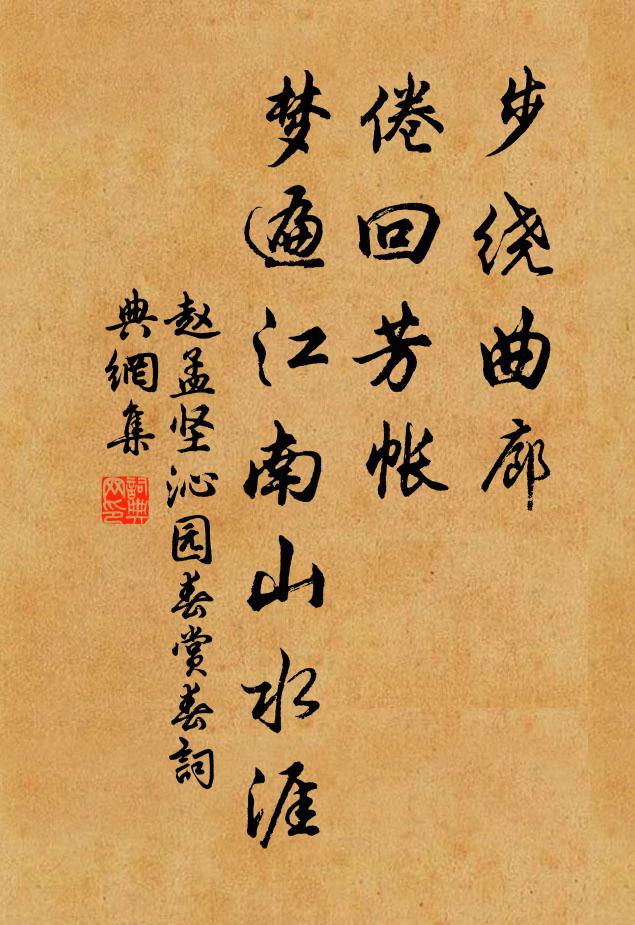 步绕曲廊
倦回芳帐
梦遍江南山水涯
赵孟坚沁园春赏春
詞典網集
詞典网印